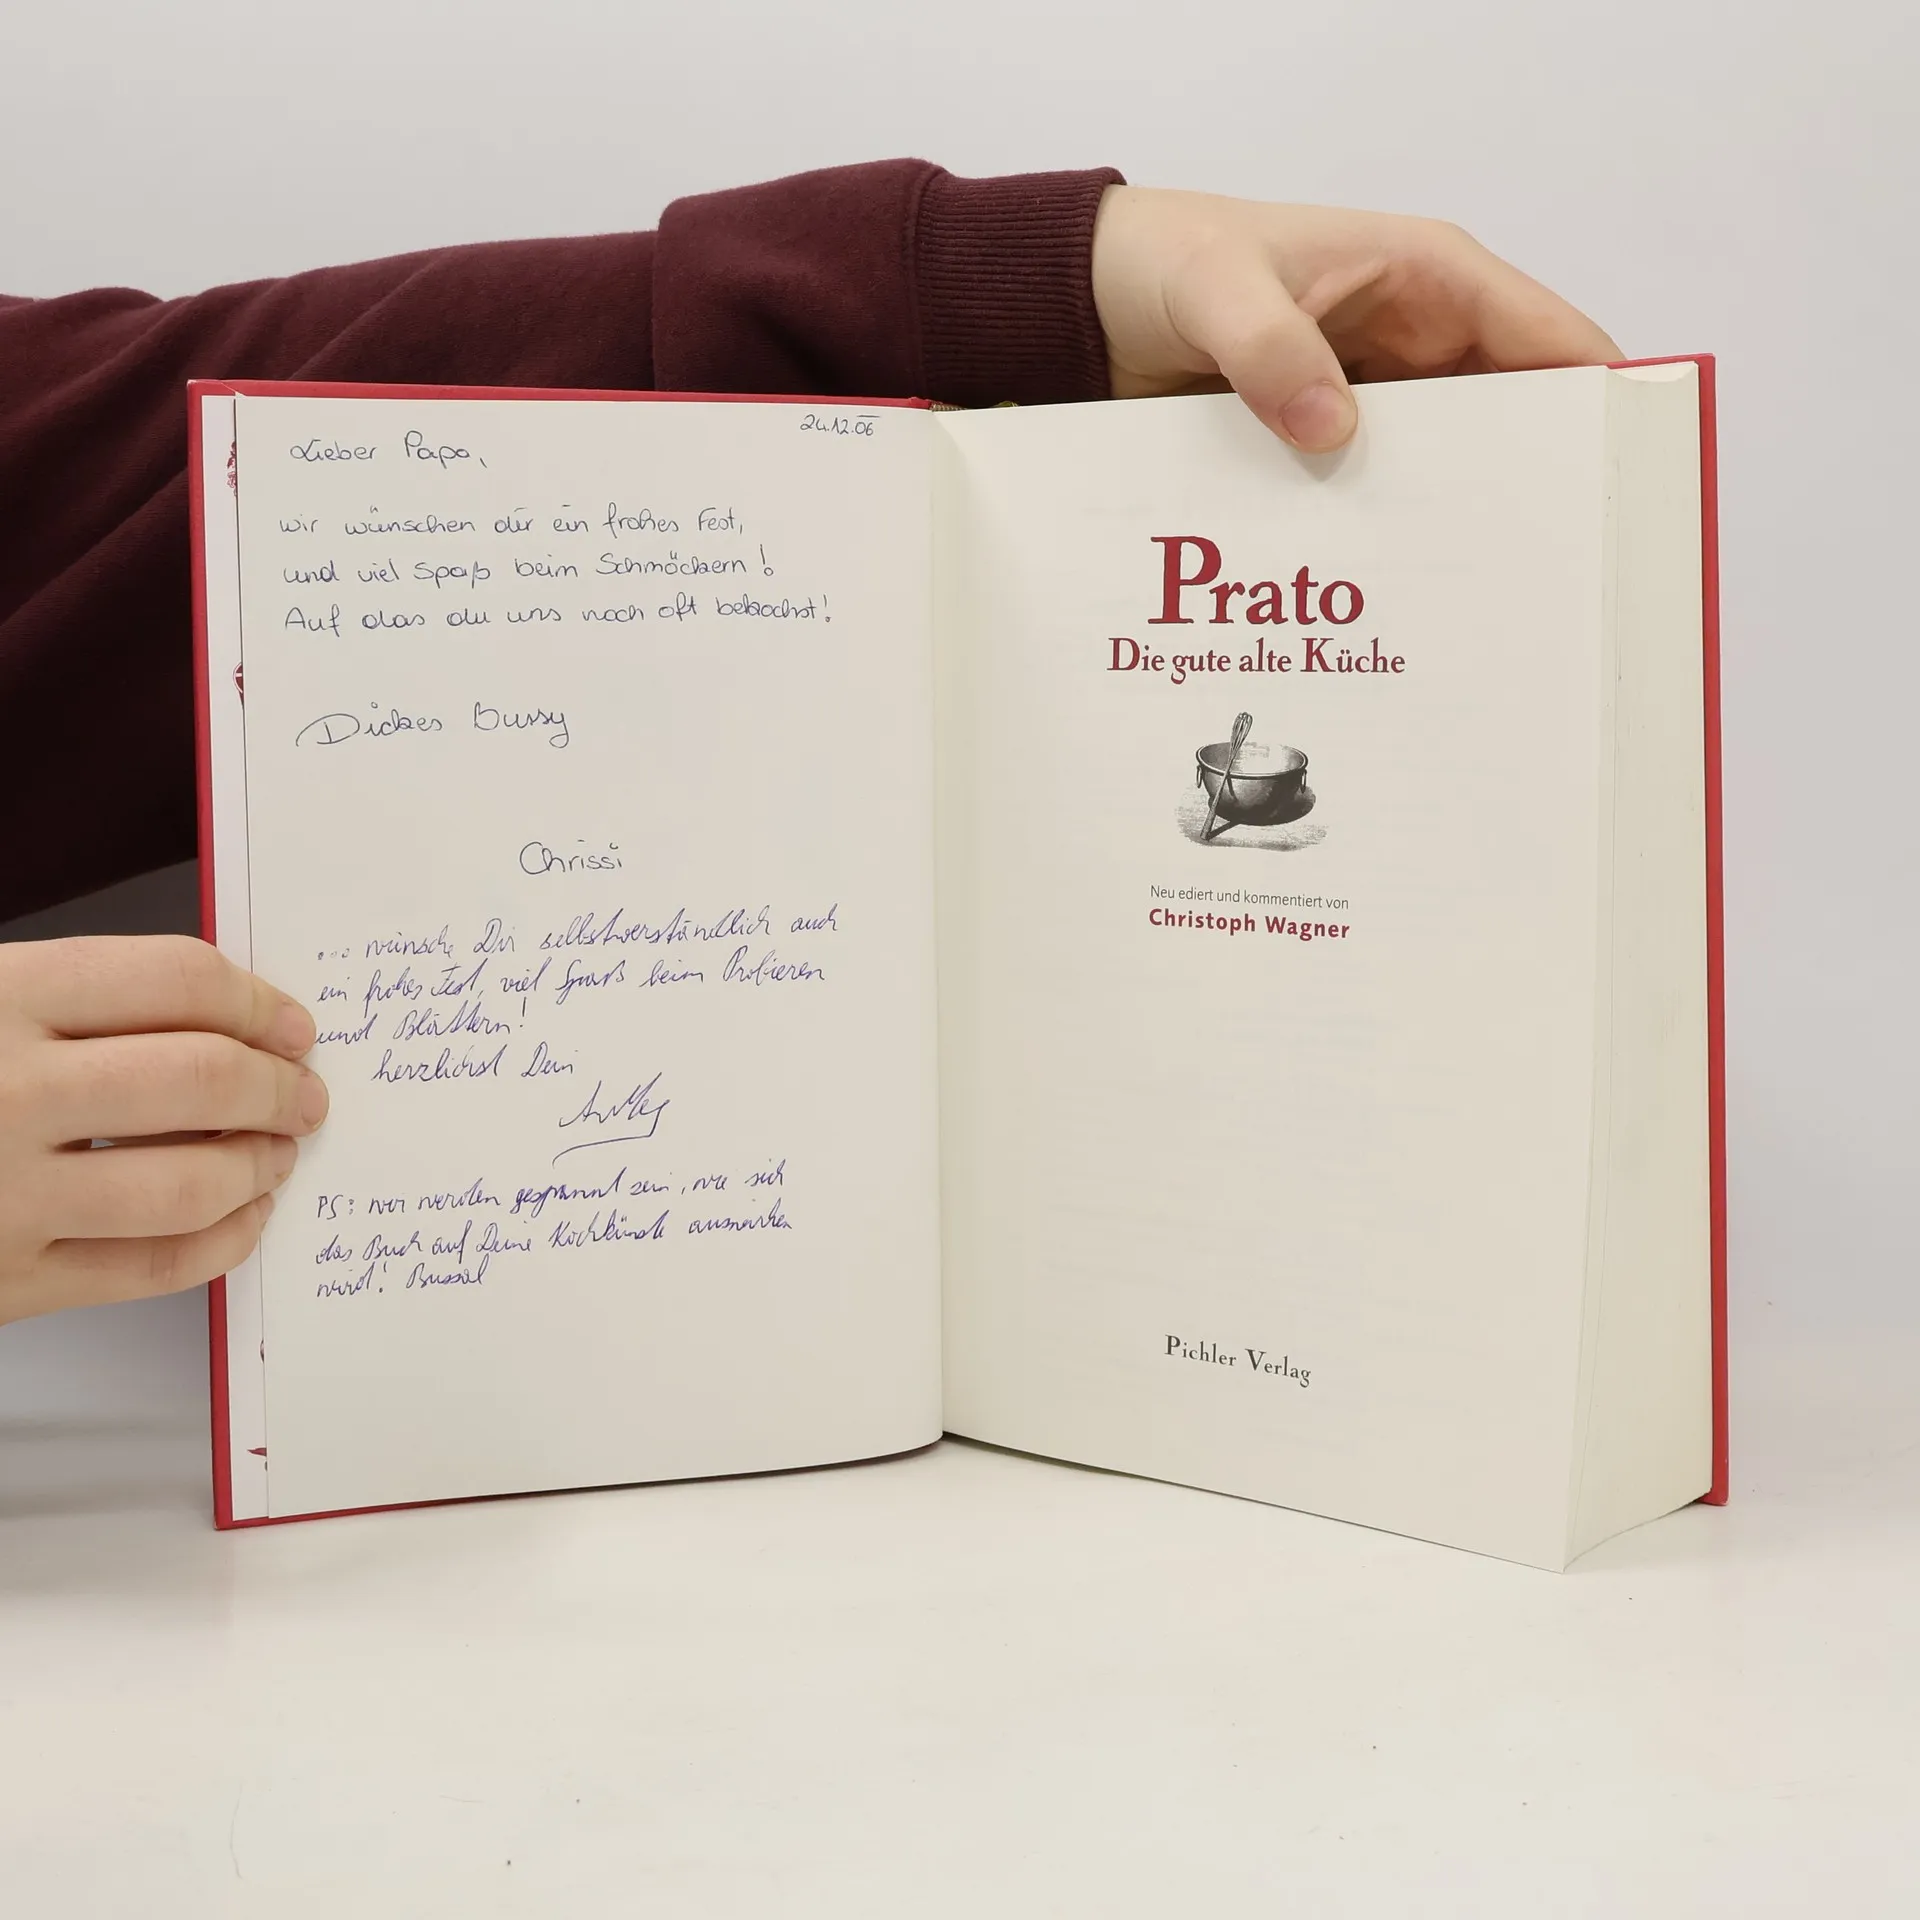 24.12.06
Lieber Papa,
wir wünschen dir ein frohes Fest,
und viel Spaß beim Schmöckern!
Auf das du uns noch oft bekochst!
Dickes Bussy
Chrissi
... wünsche Dir selbstverständlich auch
ein frohes Fest, viel Spaß beim Probieren
und Blättern!
herzlichst Dein
PS: wir werden gespannt sein, wie sich
das Buch auf Deine Kochkünste auswirken
wird! Bussal
Prato
Die gute alte Küche
Neu ediert und kommentiert von
Christoph Wagner
Pichler Verlag